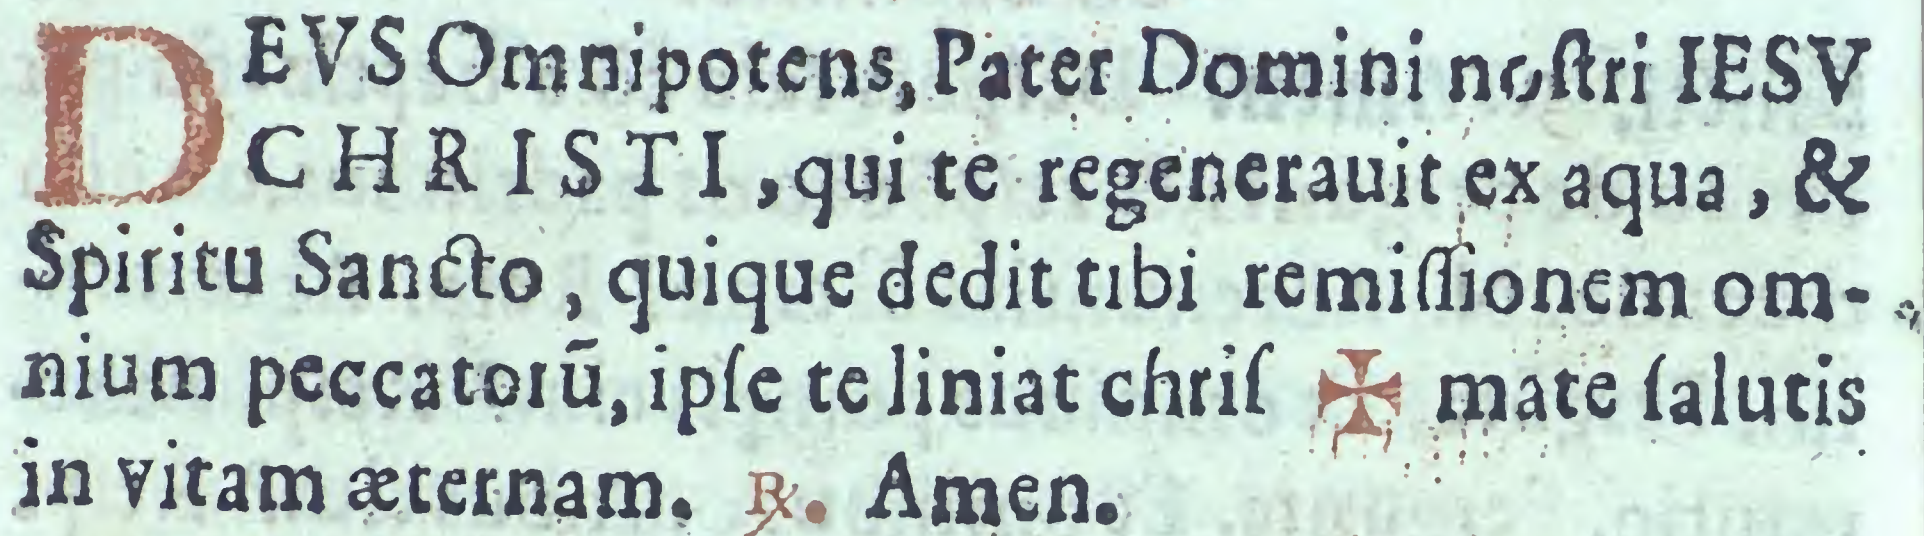 DEVS Omnipotens, Pater Domini noſtri IESV
CHRISTI, qui te regenerauit ex aqua, &
Spiritu Sancto, quique dedit tibi remiſſionem om-
nium peccatorū, ipſe te liniat chriſ ✠ mate ſalutis
in vitam æternam. ℞. Amen.